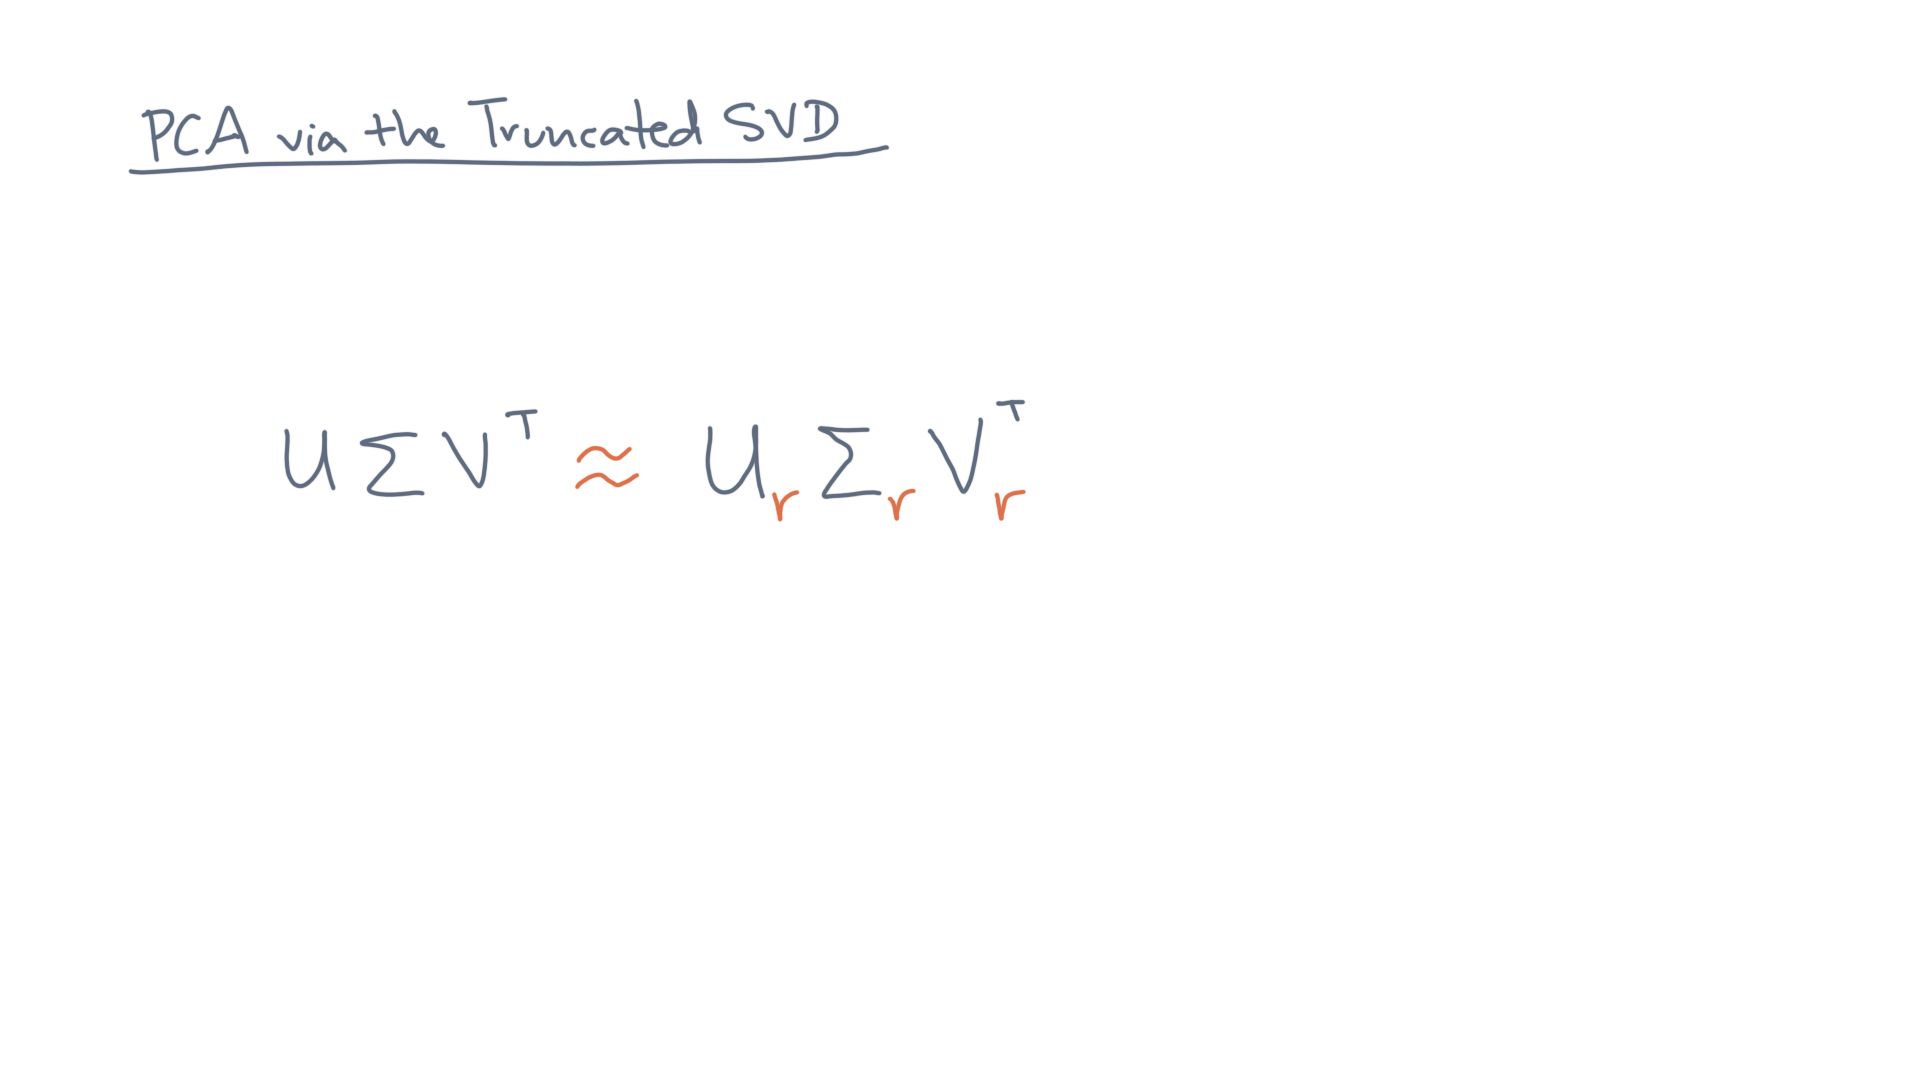 PCA via the Truncated SVD
U Σ Vᵀ ≈ Uᵣ Σᵣ Vᵣᵀ